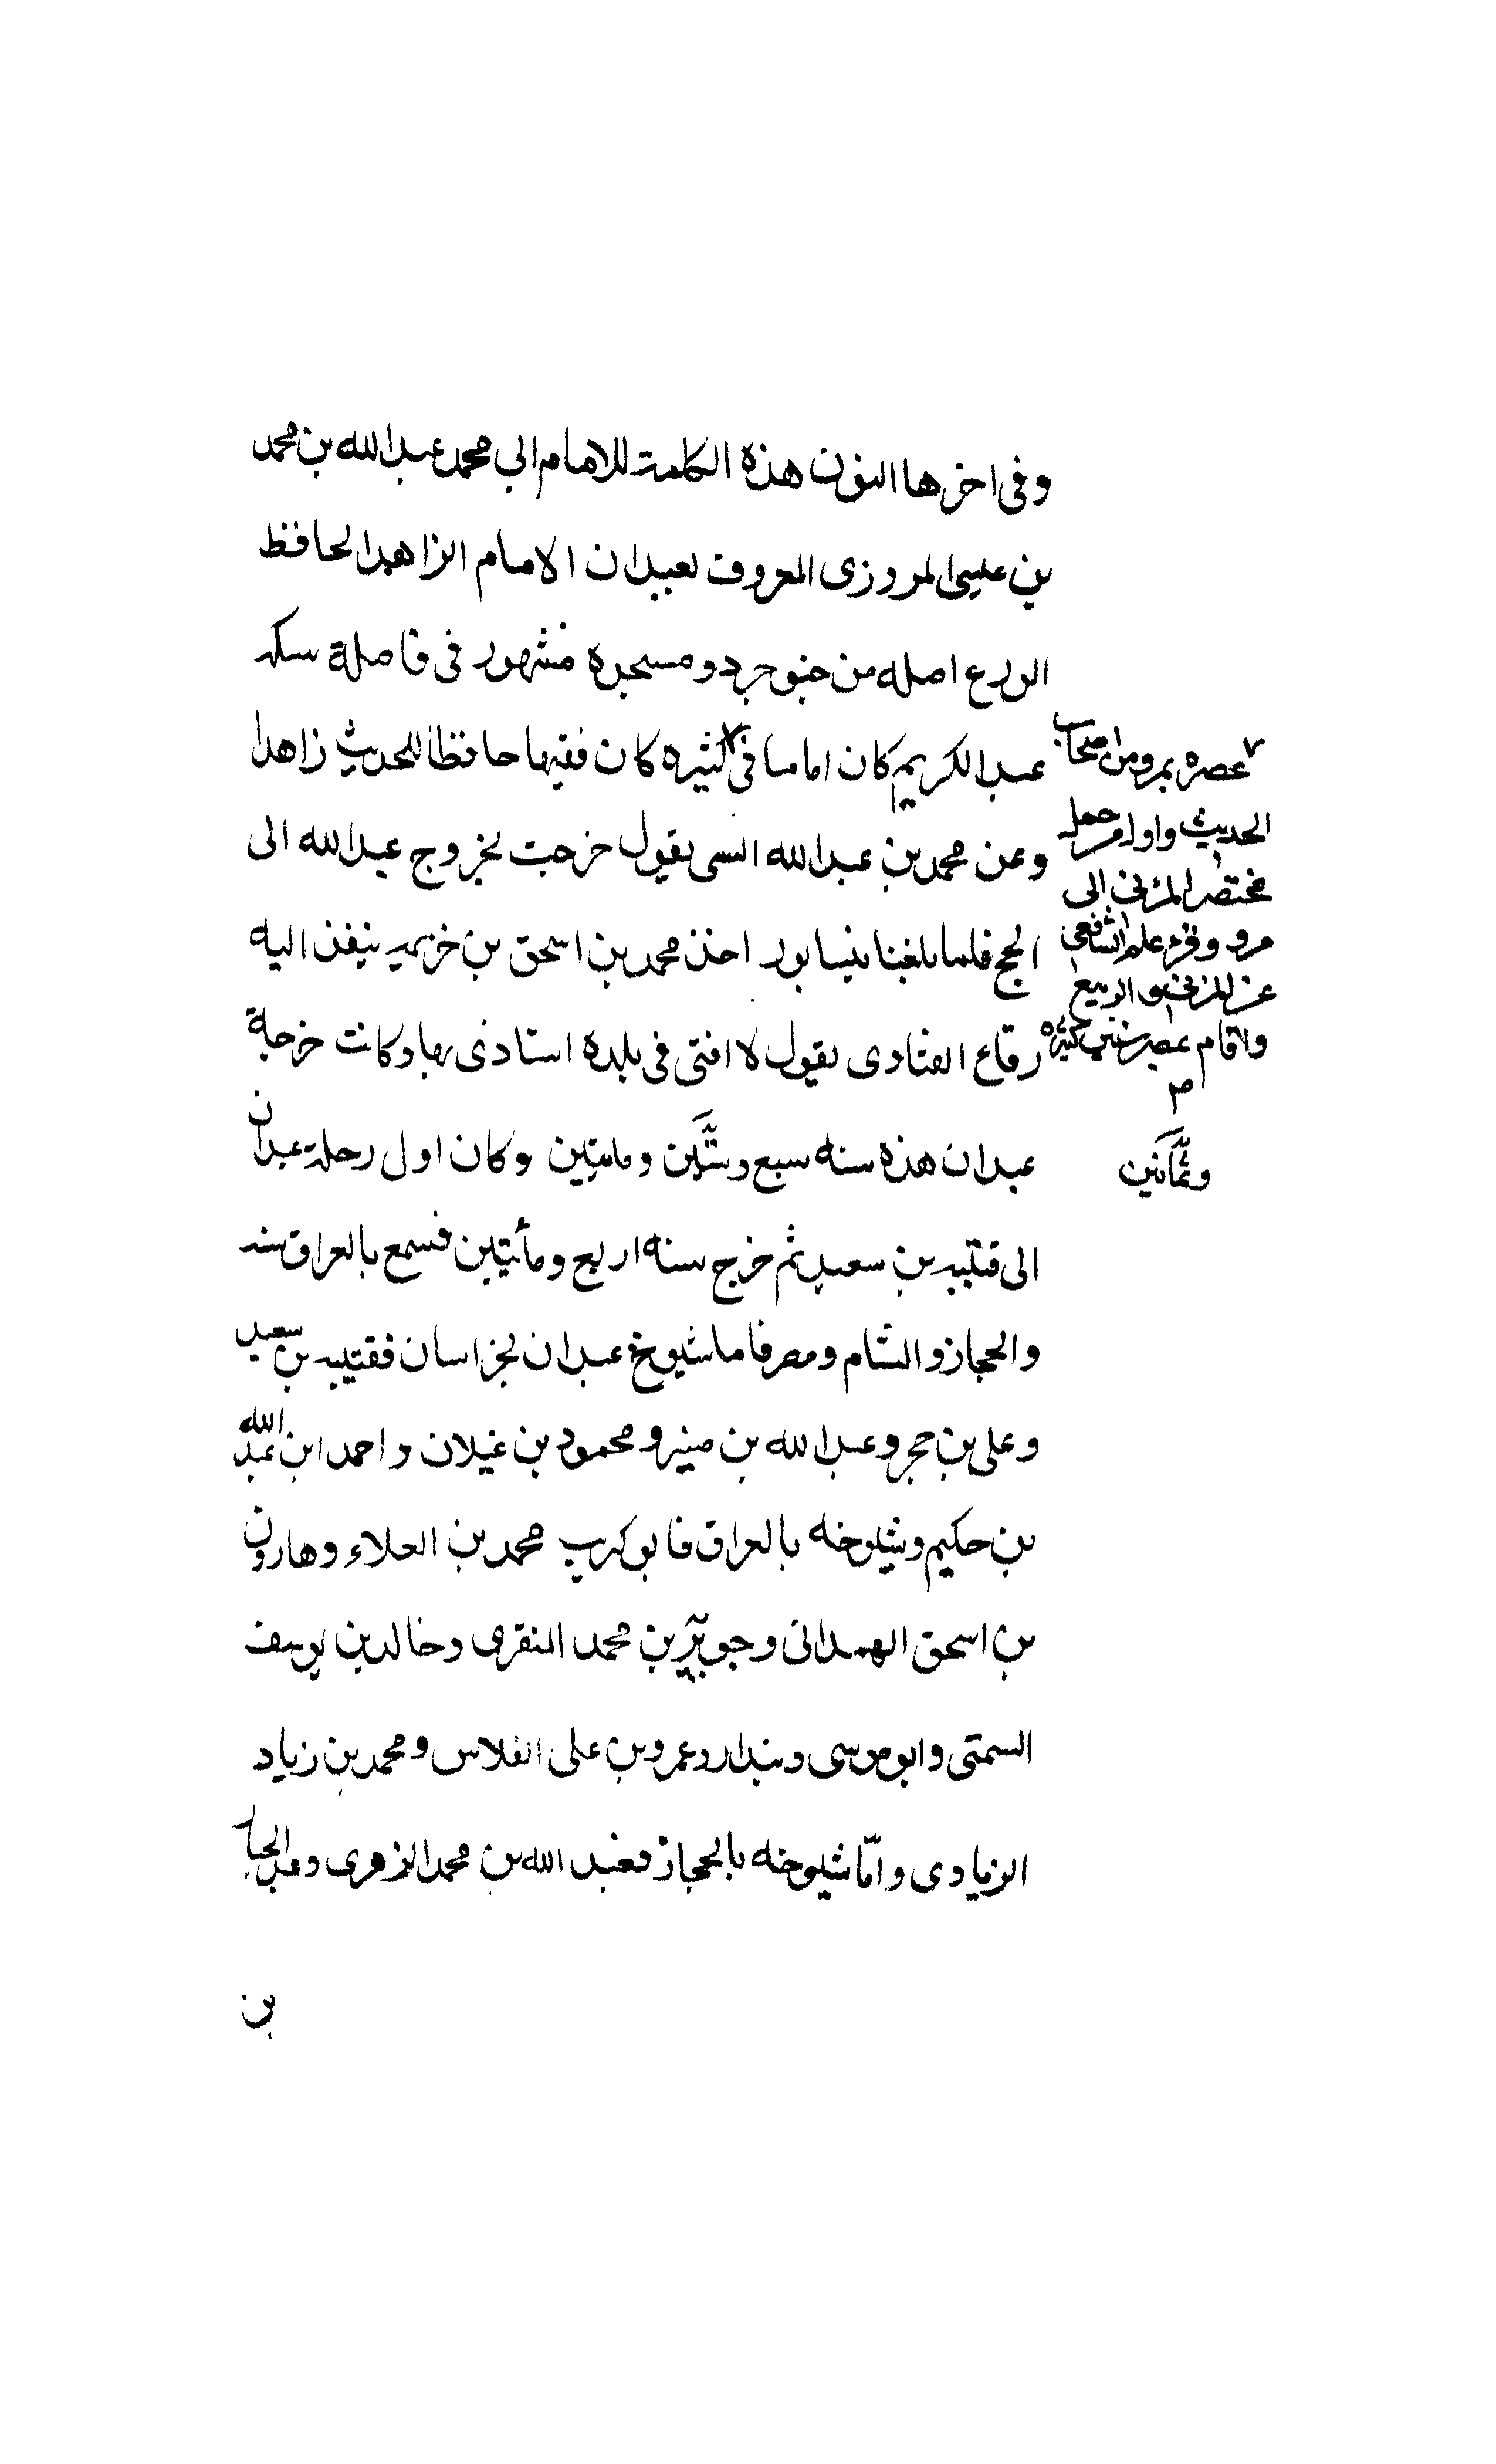 وفى اخرها النون هذه الكلمة للامام ابى محمد عبد الله بن محمد
بن عيسى المروزى المعروف بعبدان الامام الزاهد الحافظ
الورع اصله من جنوجرد ومسجده مشهور فى فاصلة سكه
عبد الكريم كان اماما فى كثيره كان فقيها حافظا للحديث زاهدا
وعن محمد بن عبد الله يقول خرجت بخروج عبد الله الى
الحج فلما بلغنا نيسابور اخذ محمد بن اسحق بن خزيمه ينفذ اليه
رقاع الفتاوى يقول لا افتى فى بلده استاذى بها وكانت خرجة
عبدان هذه سنه سبع وستين ومايتين وكان اول رحلة عبدان
الى قتيبه بن سعيد ثم خرج سنه اربع ومأتين فسمع بالعراق سنه
والحجاز والشام ومصر فاما شيوخ عبدان بخراسان فقتيبه بن سعيد
وعلى بن حجر وعبد الله بن منير ومحمود بن غيلان واحمد ابن عبد الله
بن حكيم وشيوخه بالعراق فابو كريب محمد بن العلاء وهارون
بن اسحق الهمدانى وجوبر بن محمد المنقرى وخالد بن يوسف
السمتى وابو موسى وبندار وعمرو بن على الفلاس ومحمد بن زياد
الزيادى وامّا شيوخه بالحجاز فعبد الله بن محمد الزهرى وعبد الجبار
بن
عصره بمرو من اصحاب
الحديث واول من حمل
مختصر المزنى الى
مرو وقرء علم الشافعى
عن المزنى والربيع
واقام بمصر سنين كثيره
وثمانين